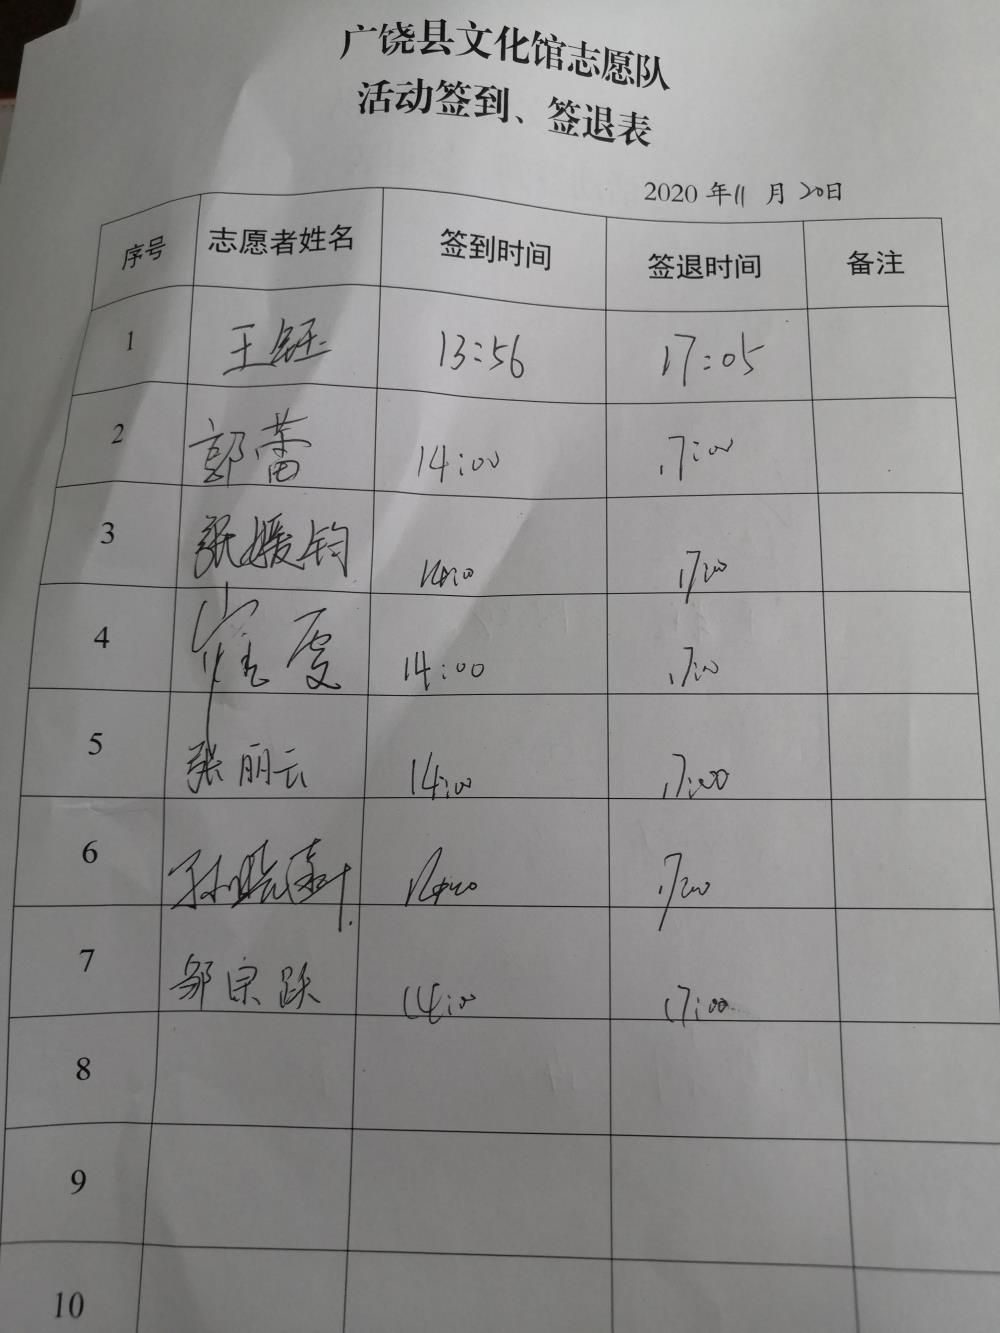 广饶县文化馆志愿队
活动签到、签退表
2020 年 11 月 20日
序号 志愿者姓名 签到时间 签退时间 备注
1 王钰 13:56 17:05
2 郭蕾 14:00 17:00
3 张媛钧 14:00 17:00
4 14:00 17:00
5 张丽云 14:00 17:00
6 孙晓 14:00 17:00
7 邹宗跃 14:00 17:00
8
9
10